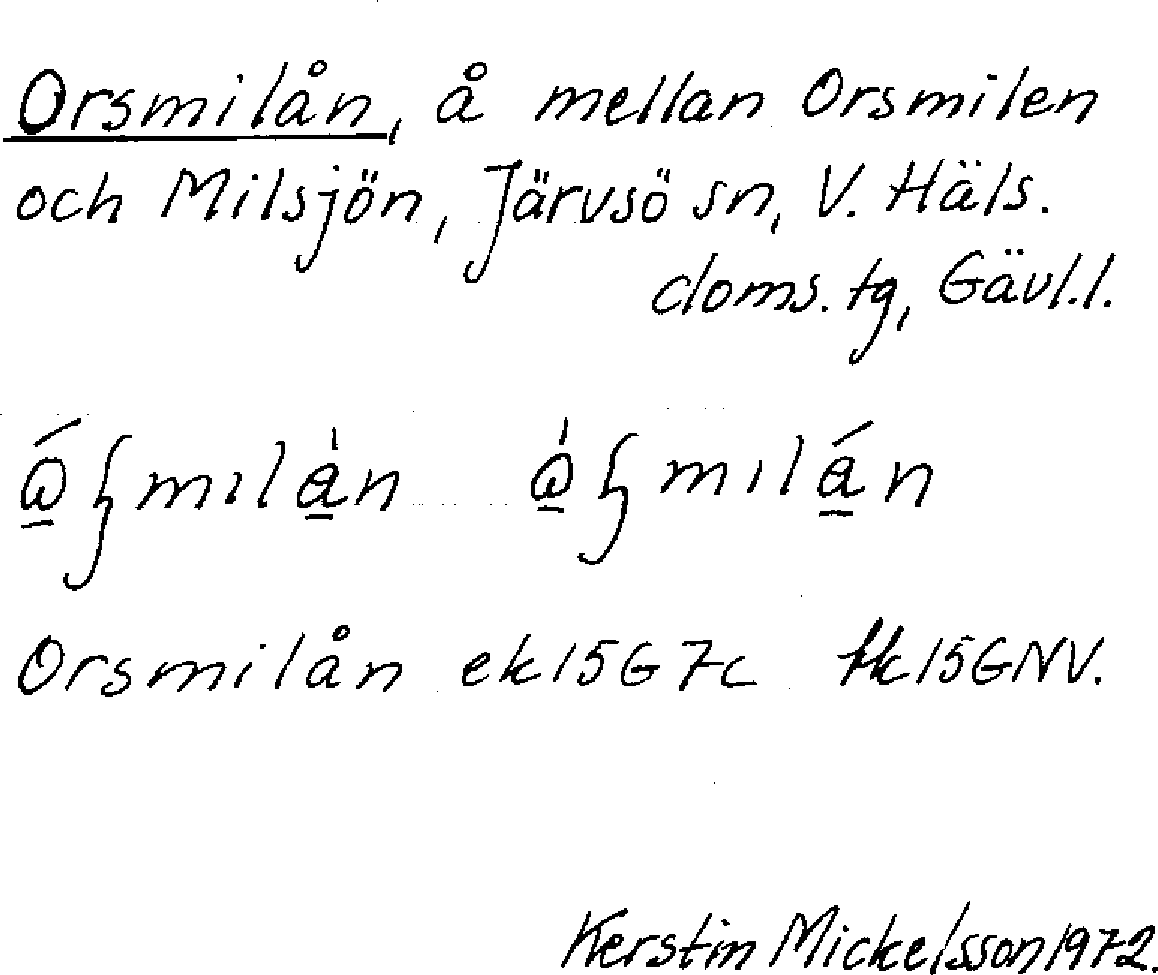 Orsmilån, å mellan Orsmilen
och Milsjön, Järvsö sn, V. Häls.
doms. tg, Gävl.l.
Orsmilån ek 15G7c tk 15GNV.
Kerstin Mickelsson 1972.